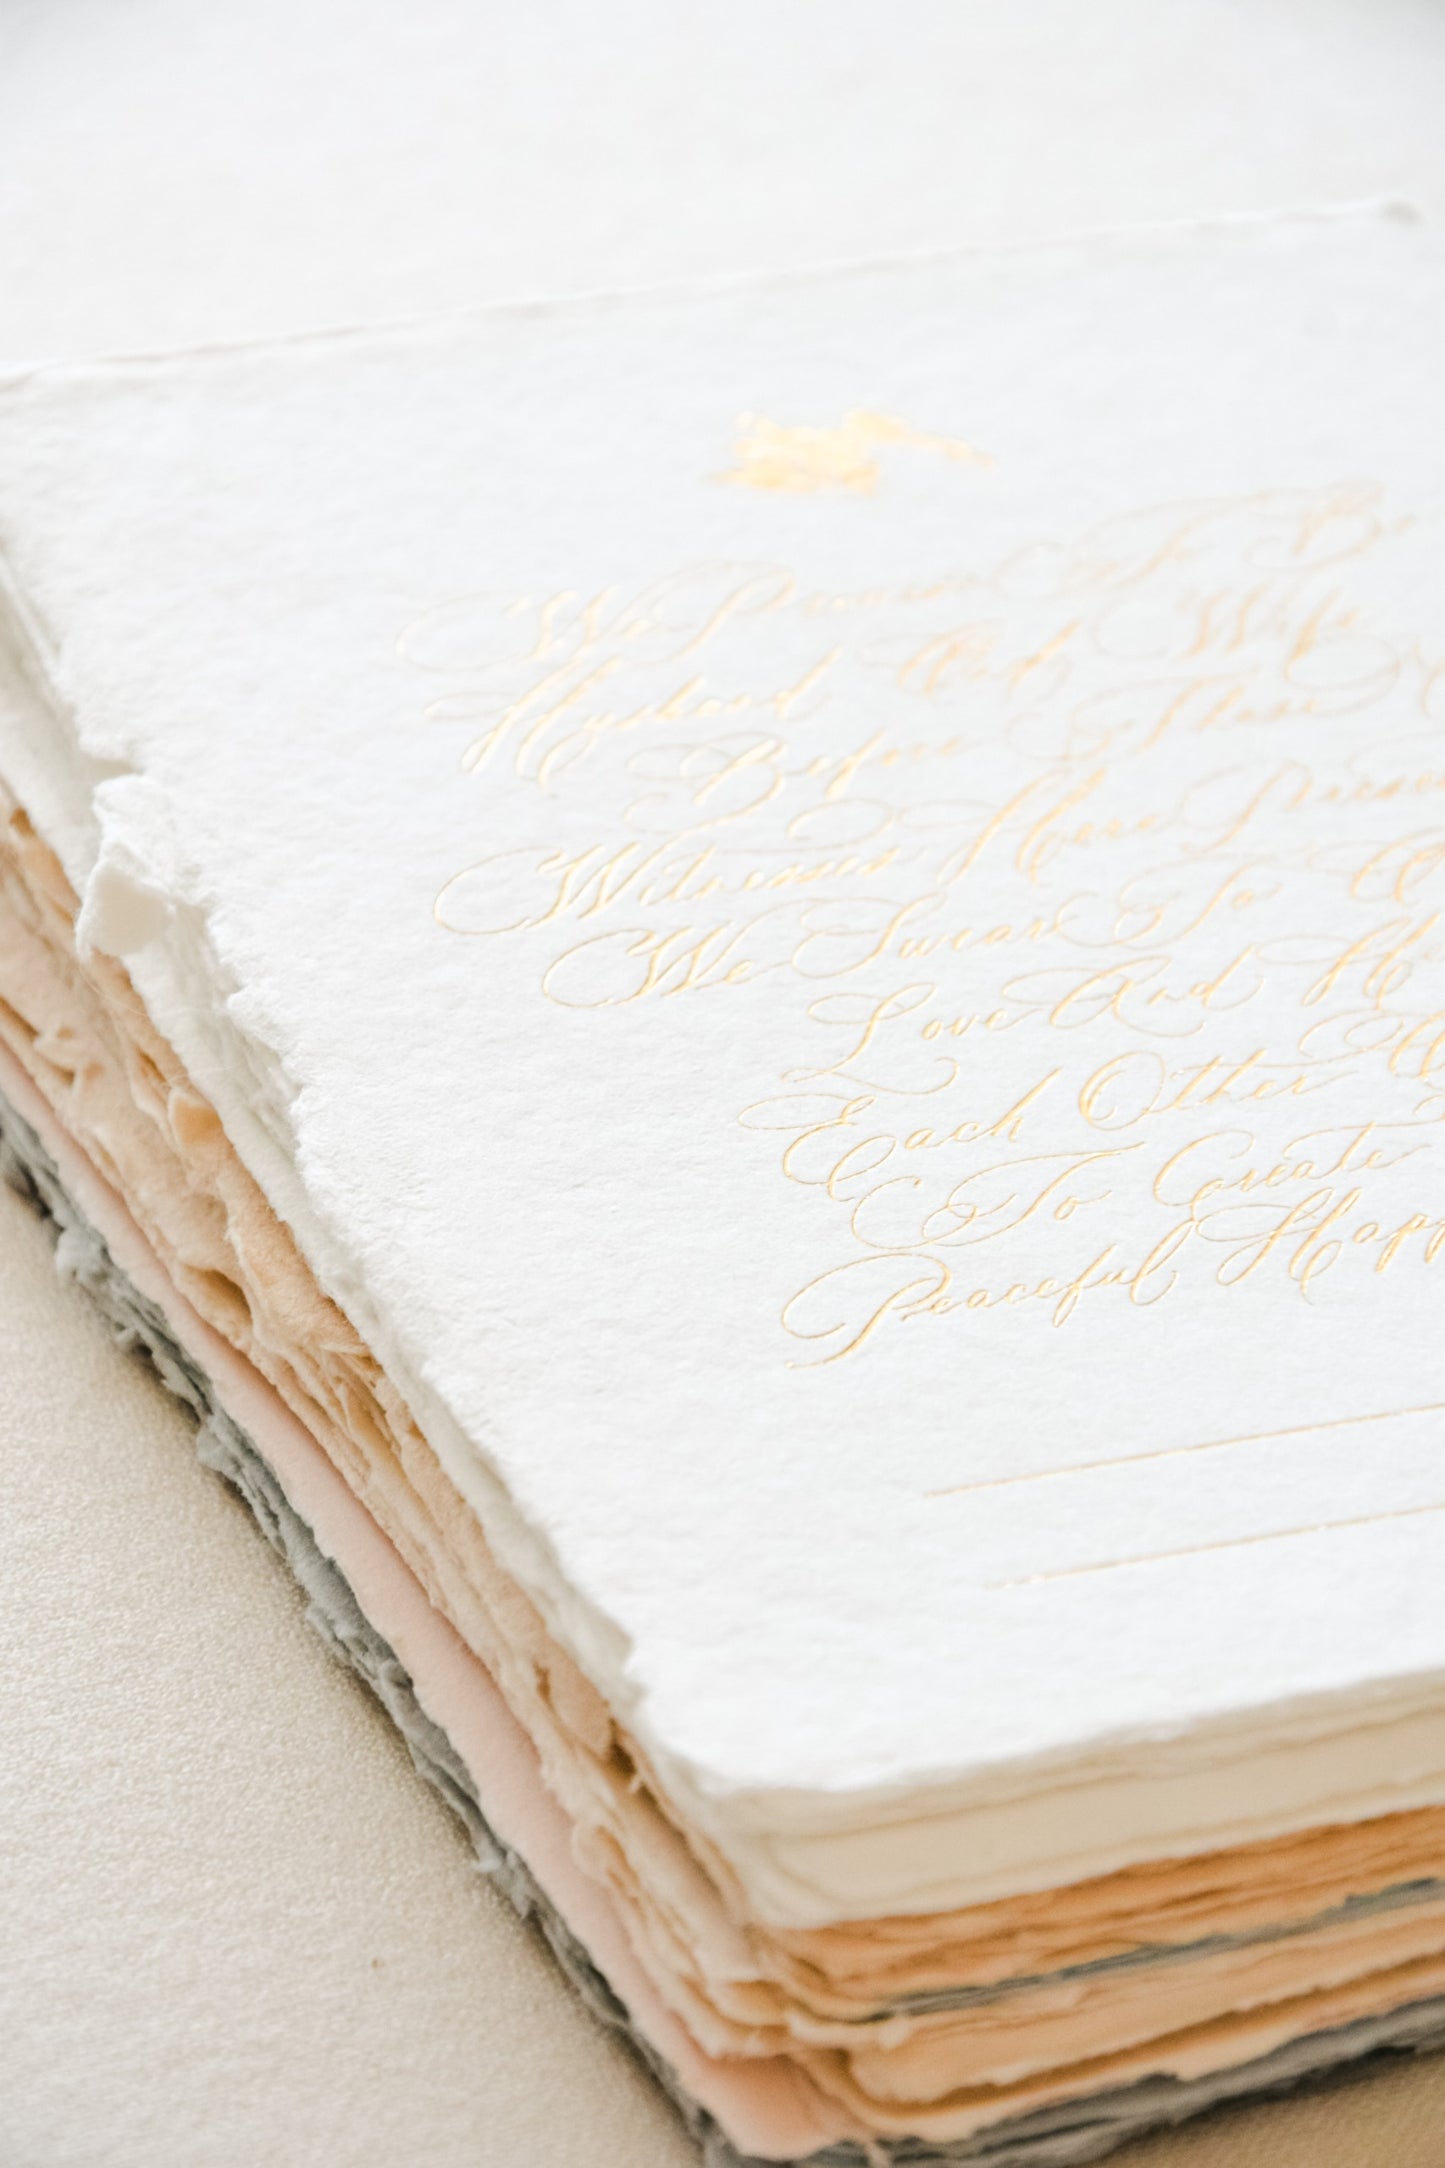 We Promise To Be
Husband And Wife
Before These
Witnesses Here Presen
We Swear To
Love And
Each Other
To Create
Peaceful Happ